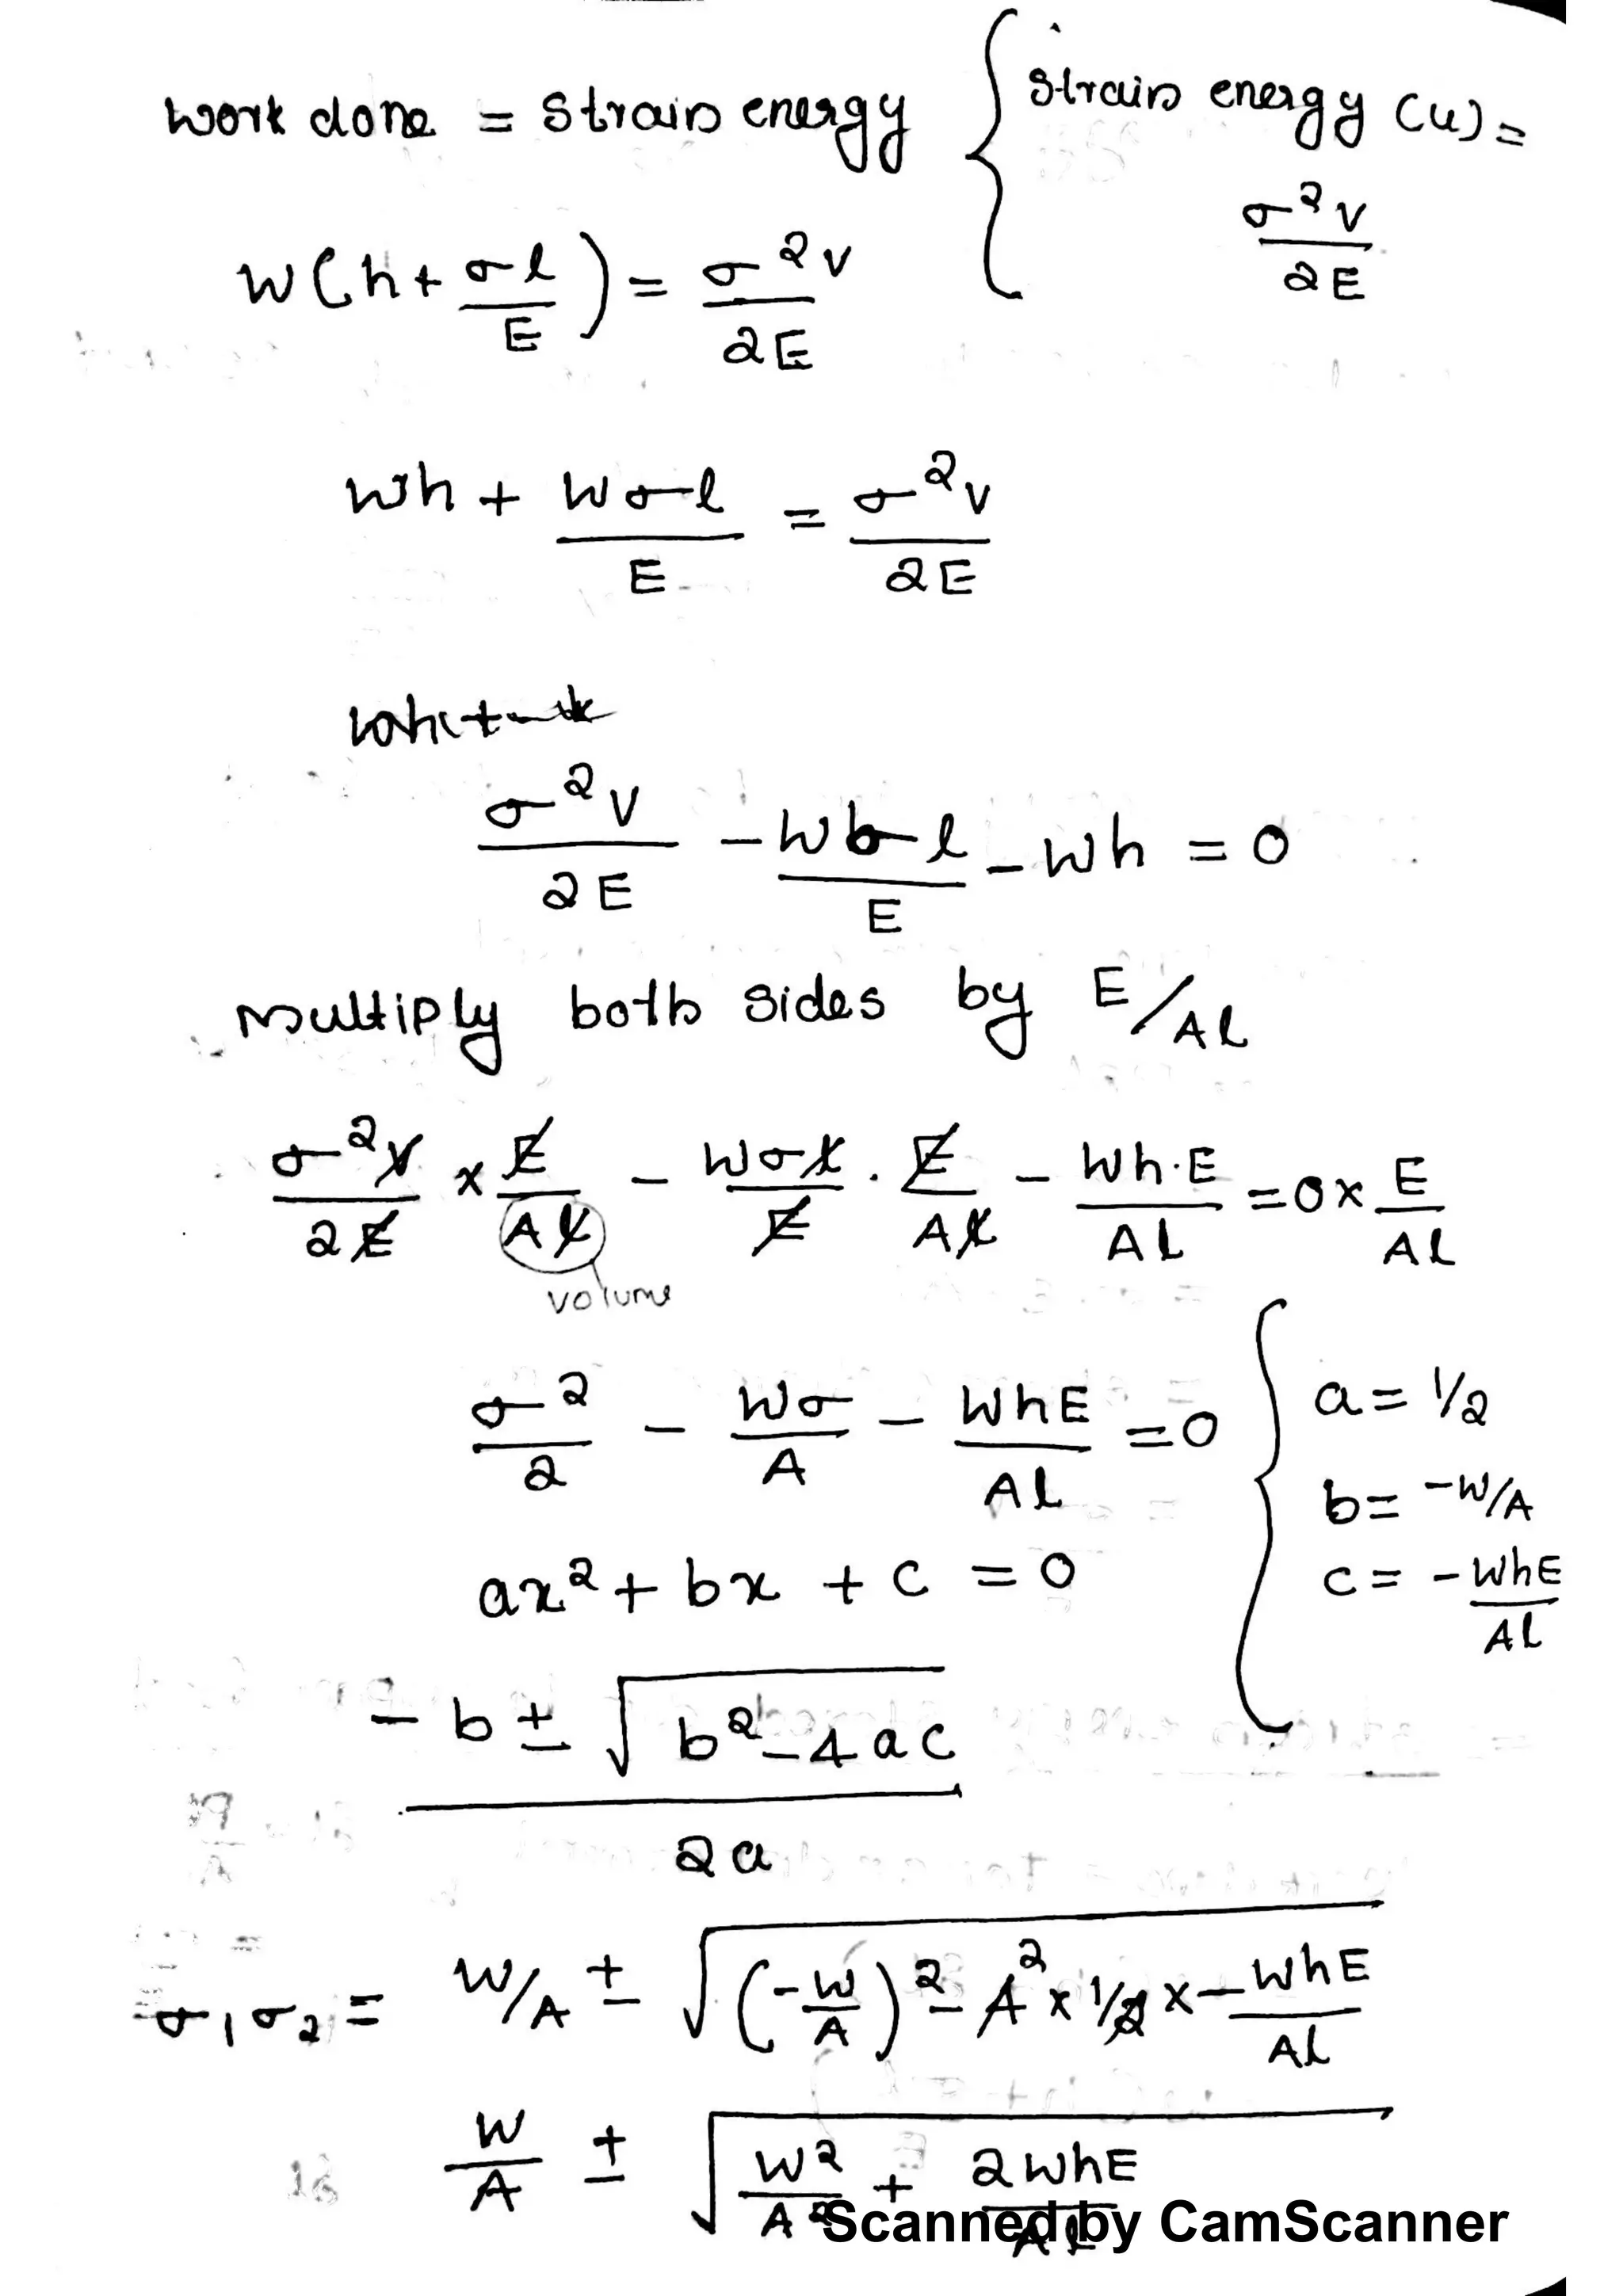 work done = strain energy { strain energy (u) =
σ²v / 2E
w(h + σl/E) = σ²v / 2E
wh + wσl/E = σ²v / 2E
σ²v / 2E - wσl/E - wh = 0
Multiply both sides by E/Al
σ²v/2E × E/Al - wσl/E · E/Al - wh·E/Al = 0 × E/Al
volume
σ²/2 - wσ/A - whE/Al = 0 { a = 1/2
b = -w/A
ax² + bx + c = 0
c = -whE/Al
-b ± √(b² - 4ac)
2a
σ₁σ₂ = w/A ± √((-w/A)² - 4² × 1/2 × -whE/Al)
w/A ± √(w²/A² + 2whE/Al)
Scanned by CamScanner